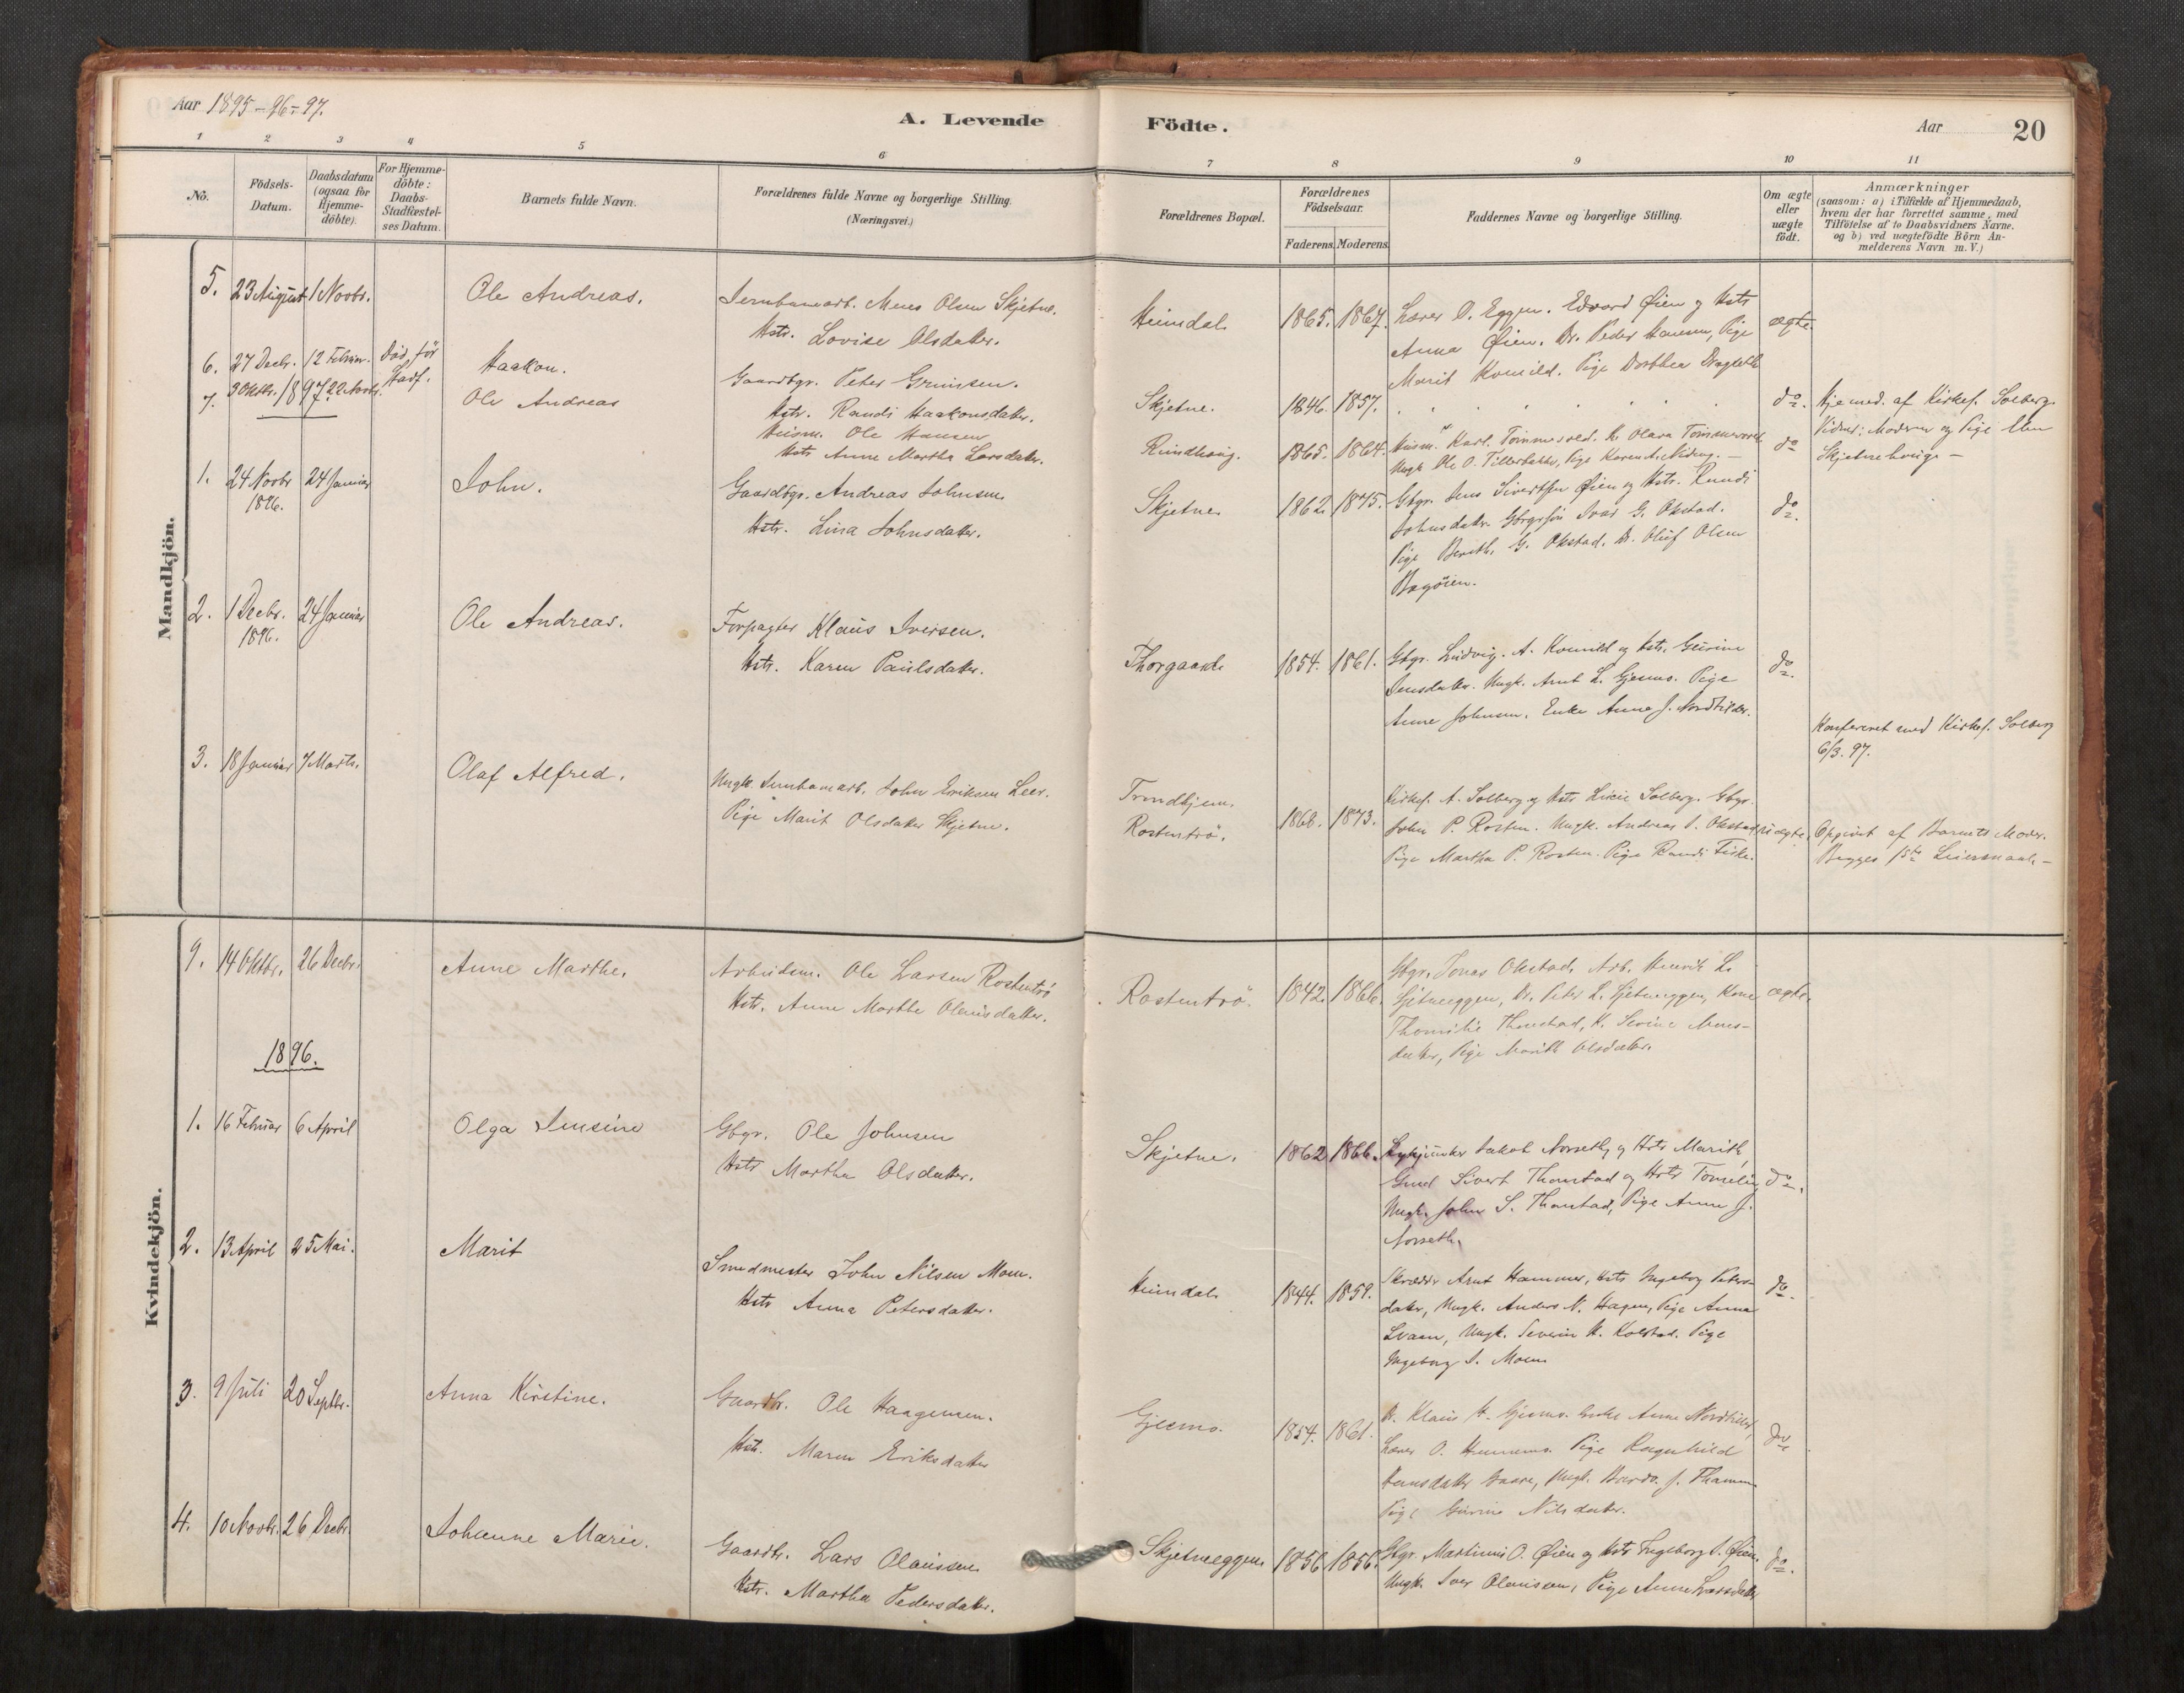 Aar 1895-96-97.
A. Levende
Födte.
Aar
20
1 2 3 4 5 6
7 8 9 10 11
No.
Födsels-Datum.
Daabsdatum (ogsaa for Hjemme-döbte).
For Hjemme-döbte: Daabs-Stadfæstel-ses Datum.
Barnets fulde Navn.
Forældrenes fulde Navne og borgerlige Stilling.
(Næringsvei.)
Forældrenes Bopæl.
Forældrenes Födselsaar.
Faderens. Moderens.
Faddernes Navne og borgerlige Stilling.
Om ægte eller uægte födt.
Anmærkninger
(saasom: a) i Tilfælde af Hjemmedaab,
hvem der har forrettet samme, med
Tilföielse af to Daabsvidners Navne.
og b) ved uægtefödte Börn An-
melderens Navn m. V.)
Mandkjön.
5. 23 August 1 Novbr. Ole Andreas.
Jernbanearb. Olsen Skjetne.
Hstr. Lovise Olsdatter.
Heimdal. 1865. 1867.
Lærer O. Eggen. Edvard Øien og Hstr
Anna Øien. Dr. Peder Hansen, Pige
Marit Kvenild. Pige Dorthea
ægte.
6. 27 Decbr. 12 Februar. Död för Stadf. Haakon.
Gaardbgr. Peter Grimsen.
Hstr. Randi Haakonsdatter.
Skjetne. 1846. 1857.
do. Hjemmed. af Kirkes. Solberg.
Vidner: Moderen og Pige
Skjetnehaug-
1897
7. 3 Oktbr. 22 Novbr. Ole Andreas
Husm. Ole Hansen
Hstr Anne Martha Larsdatter.
Rundhaug. 1865. 1864.
Husm. Karl. K. Olava
Ungk. Ole O. Tillerbakke, Pige Karen A.
do
1. 24 Novbr 1896. 24 Januar John.
Gaardbgr. Andreas Johnsen
Hstr. Lina Johnsdatter.
Skjetne 1862. 1875.
Gbgr. Jens Sivertsen Øien og Hstr. Randi
Johnsdatter. Gbrgrsön Ivar G. Okstad.
Pige Berith. G. Okstad. Dr. Oluf Olsen
Bagöien.
do.
2. 1 Decbr. 1896. 24 Januar Ole Andreas.
Forpagter Klaus Iversen.
Hstr. Karen Paulsdatter.
Thorgaard. 1854. 1861.
Gbgr. Ludvig. A. Kvenild og Hstr. Gurine
Jensdatter. Ungk. Arnt L. Gjesmo. Pige
Anne Johnsen. Enke Anne J. Nordtiller.
do.
Konfereret med Kirkes. Solberg
6/3. 97.
3. 18 Januar 7 Marts. Olaf Alfred.
Ungk. Jernbanearb. John Eriksen Leer.
Pige Marit Olsdatter Skjetne.
Trondhjem.
Rostentrö. 1868. 1873.
Kirkes. A. Solberg og Hstr Solberg. Gbgr.
John P. Rosten. Ungk. Andreas Okstad
Pige Martha P. Rosten. Pige Randi
uægte. Opgivet af Barnets Moder.
Begges 1ste Leiermaal.-
Kvindekjön.
9. 14 Oktbr. 26 Decbr. Anne Marthe.
Arbeidsm. Ole Larsen Rostentrö
Hstr. Anne Marthe Olausdatter.
Rostentrö. 1842. 1866.
Gbgr. Jonas Okstad, Arb. Henrik L.
Sjetneeggen, Dr. Peter L. Sjetneeggen, Kone
Thomilie Thonstad, K. Serine
datter, Pige Marith Olsdatter.
ægte.
1896.
1. 16 Februar 6 April Olga Jensine
Gbgr. Ole Johnsen
Hstr Martha Olsdatter.
Skjetne. 1862 1866.
Jakob Norseth, og Hstr Marith,
Gmd Sivert Thonstad og Hstr
Ungk. John S. Thonstad, Pige Anne J.
Norseth.
do.
2. 13 April 25 Mai. Marit
Smedmester John Nilsen Moen.
Hstr Anna Petersdatter.
Heimdal. 1844. 1859.
Skrædder Arnt Hammer, Hstr Ingeborg Peters-
datter, Ungk. Anders N. Hagen, Pige Anna
Svaan, Ungk. Severin H. Kolstad. Pige
Ingeborg J. Moen
do.
3. 9 Juli 20 Septbr. Anna Kirstine.
Gaardbr. Ole Haagensen.
Hstr. Maren Eriksdatter
Gjesmo. 1854. 1861.
Dr. Klaus H. Gjesmo. Enke Anne Nordtiller,
Lærer O. Pige Ragnhild
Hansdatter Ungk. J.
Pige Gurine Nilsdatter.
do
4. 10 Novbr. 26 Decbr. Johanne Marie.
Gaardbr. Lars Olaussen
Hstr. Martha Pedersdatter.
Skjetneeggen 1856 1856.
Gbgr. Martinus O. Øien og Hstr Ingeborg Øien.
Ungk. Iver Olaussen, Pige Anne Larsdatter
do.